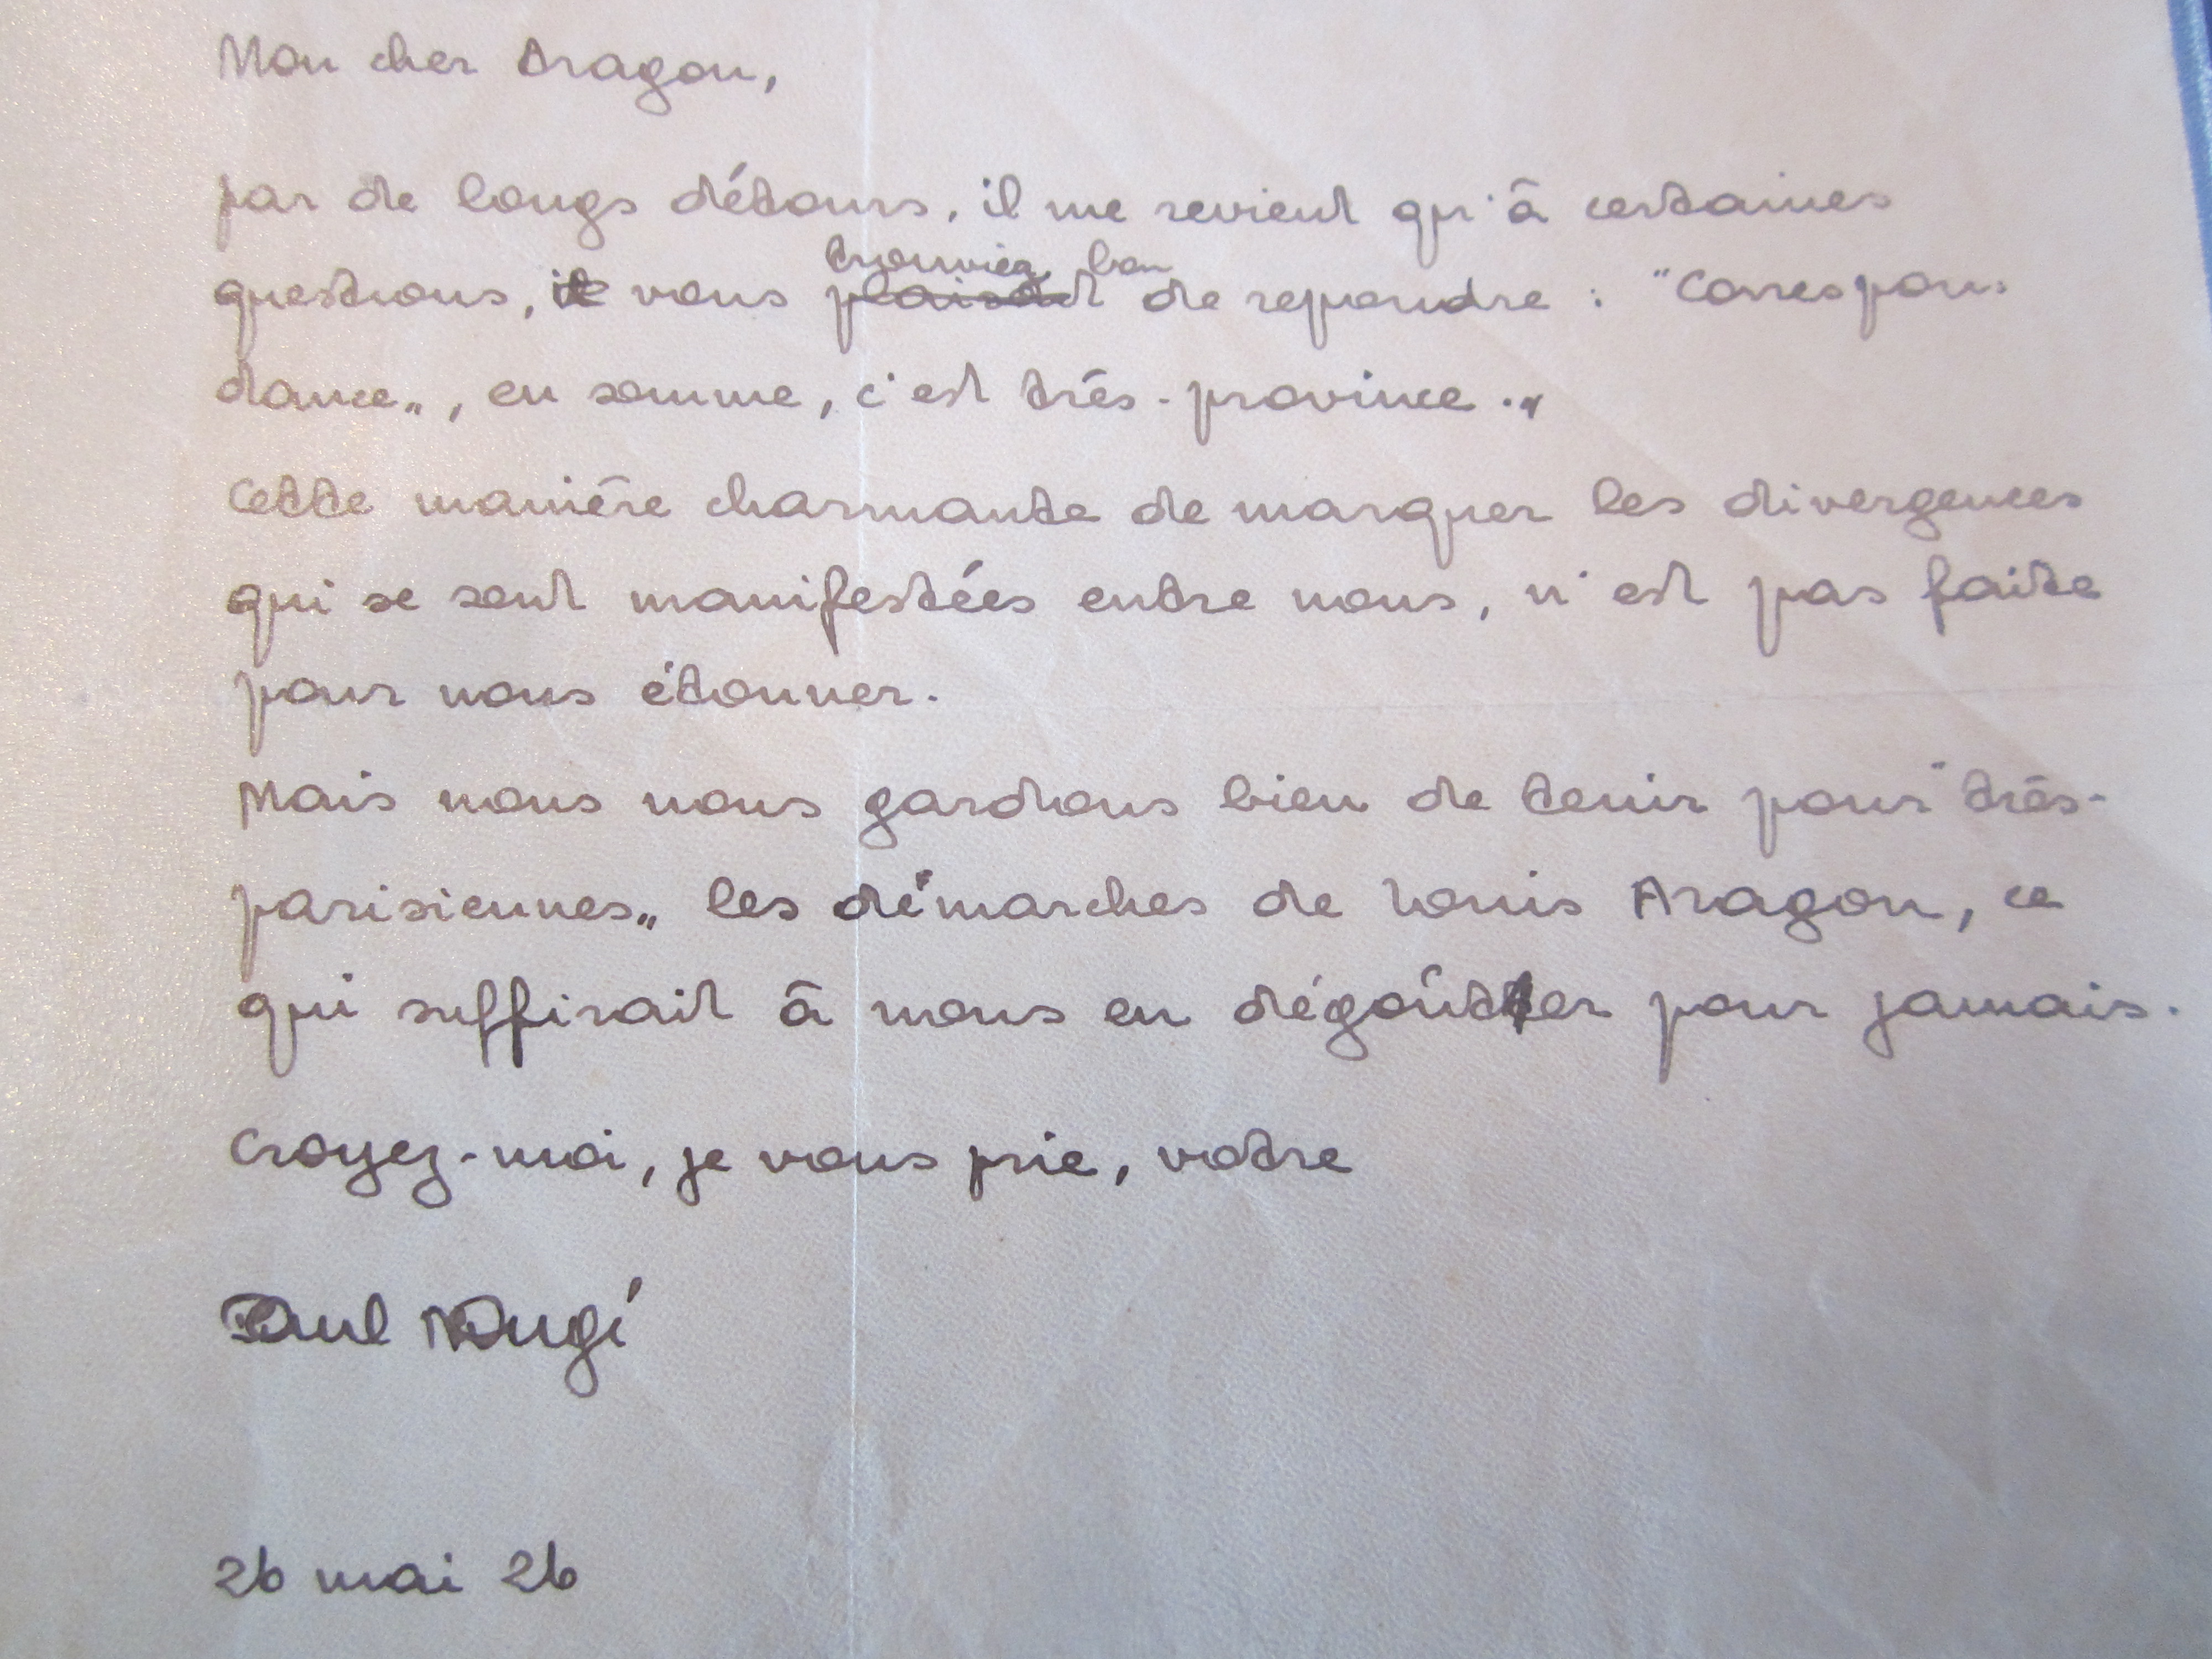 Mon cher Aragon,
par de longs détours, il me revient qu'à certaines
trouviez bon
questions, il vous plaisait de repondre : "Correspon-
dance„, en somme, c'est très-province.„
Cette manière charmante de marquer les divergences
qui se sont manifestées entre nous, n'est pas faite
pour nous étonner.
Mais nous nous gardions bien de tenir pour "très-
parisiennes„ les démarches de Louis Aragon, ce
qui suffirait à nous en dégoûter pour jamais.
Croyez-moi, je vous prie, votre
Paul Nougé
26 mai 26